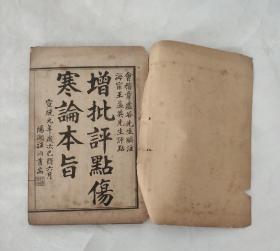 會稽章虛谷先生編注
海甯王孟英先生評點
增批評點傷
寒論本旨
宣統元年歲次己酉六月